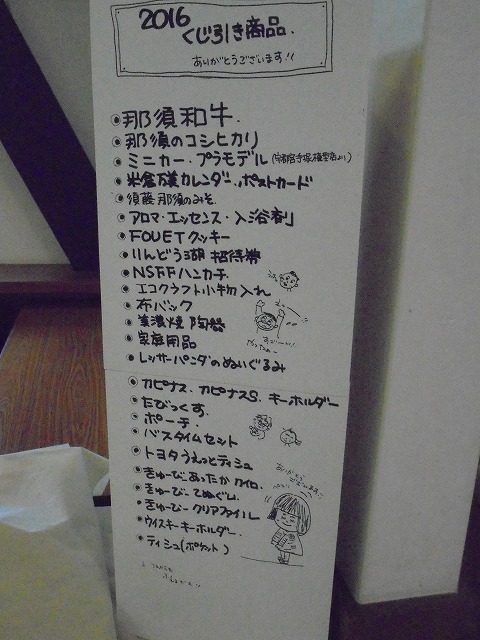 2016
くじ引き商品.
ありがとうございます!!
◉那須和牛.
◉那須のコシヒカリ
◉ミニカー・プラモデル
◉カレンダー.ポストカード
◉須藤 那須のみそ
◉アロマ・エッセンス・入浴剤
◉FOUETクッキー
◉りんどう湖 招待券
◉NSFFハンカチ
◉エコクラフト小物入れ
◉布バック
◉美濃焼 陶器
◉家庭用品
◉レッサーパンダのぬいぐるみ
◉カピナス.カピナスS.キーホルダー
◉たびっくす.
◉ポーチ.
◉バスタイムセット
◉トヨタうぇっとティシュ
◉きゅーびーあったかカイロ.
◉きゅーびーてぬぐい.
◉きゅーびークリアファイル
◉ウイスキーキーホルダー.
◉ティシュ(ポケット)
ありがとう
ございます!!